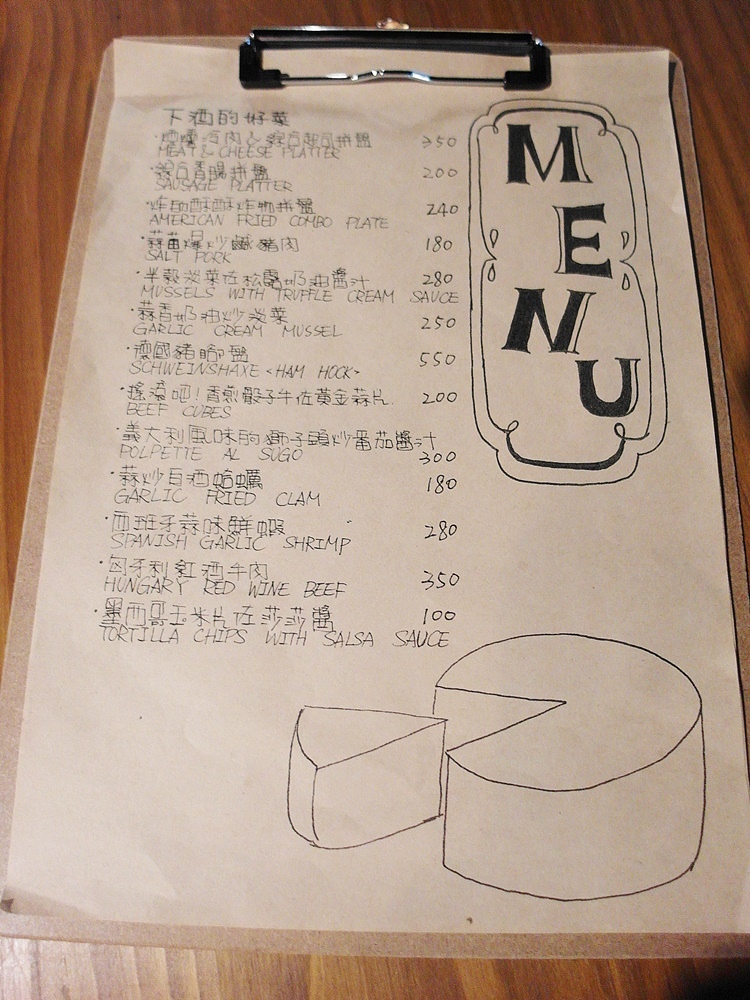 下酒的好菜
·煙燻冷肉&綜合起司拼盤 350
MEAT & CHEESE PLATTER
·綜合香腸拼盤 200
SAUSAGE PLATTER
·炸物酥酥炸物拼盤 240
AMERICAN FRIED COMBO PLATE
·蒜苗爆炒鹹豬肉 180
SALT PORK
·半殼淡菜佐松露奶油醬汁 280
MUSSELS WITH TRUFFLE CREAM SAUCE
·蒜香奶油炒淡菜 250
GARLIC CREAM MUSSEL
·德國豬腳盤 550
SCHWEINSHAXE <HAM HOCK>
·搖滾吧!香煎骰子牛佐黃金蒜片. 200
BEEF CUBES
·義大利風味肉獅子頭炒番茄醬汁
POLPETTE AL SUGO 300
·蒜炒白酒蛤蠣 180
GARLIC FRIED CLAM
·西班牙蒜味鮮蝦 280
SPANISH GARLIC SHRIMP
·匈牙利紅酒牛肉 350
HUNGARY RED WINE BEEF
·墨西哥玉米片佐莎莎醬 100
TORTILLA CHIPS WITH SALSA SAUCE
MENU